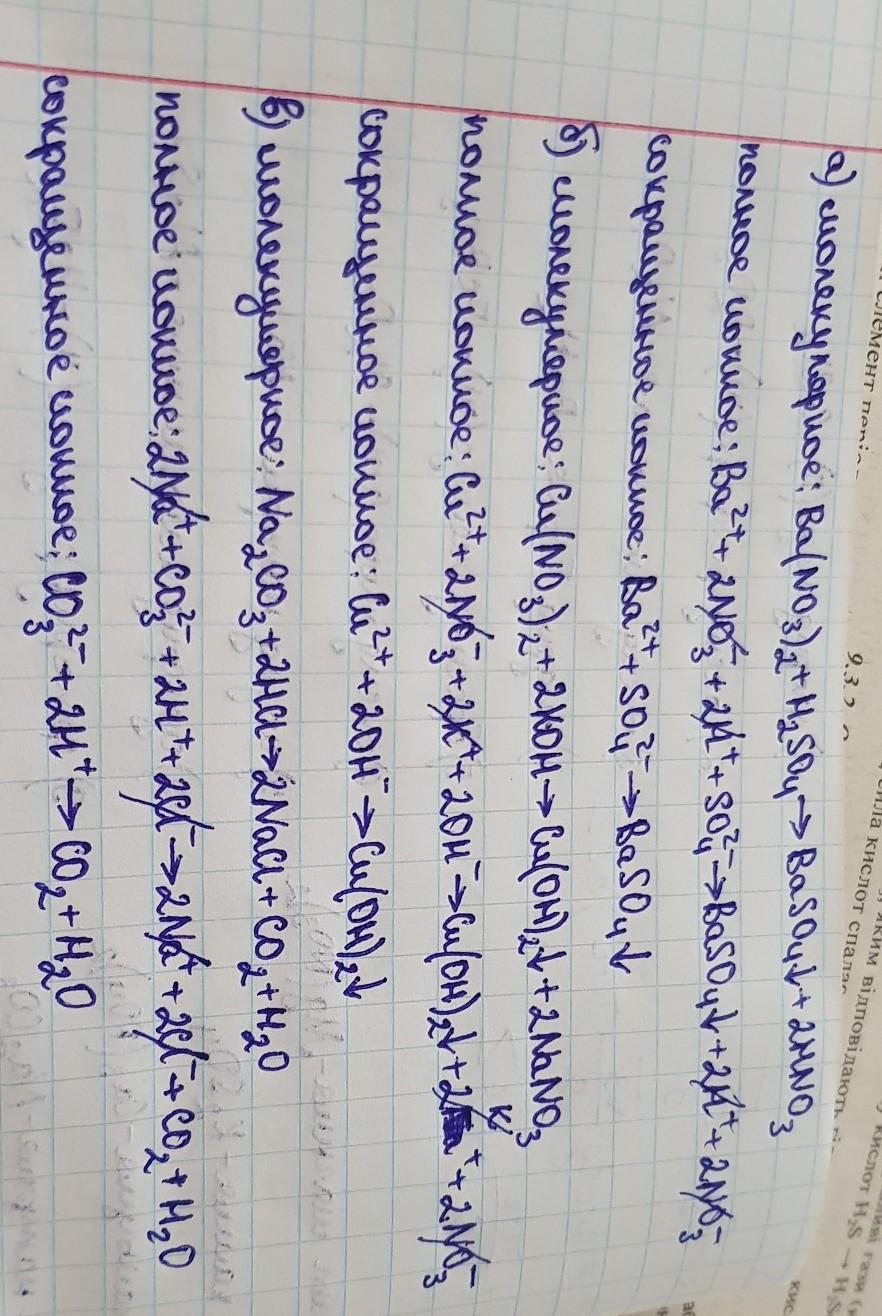 а) молекулярное: Ba(NO₃)₂ + H₂SO₄ → BaSO₄↓ + 2HNO₃
полное ионное: Ba²⁺ + 2NO₃⁻ + 2H⁺ + SO₄²⁻ → BaSO₄↓ + 2H⁺ + 2NO₃⁻
сокращенное ионное: Ba²⁺ + SO₄²⁻ → BaSO₄↓
б) молекулярное: Cu(NO₃)₂ + 2KOH → Cu(OH)₂↓ + 2NaNO₃
полное ионное: Cu²⁺ + 2NO₃⁻ + 2K⁺ + 2OH⁻ → Cu(OH)₂↓ + 2K⁺ + 2NO₃⁻
сокращенное ионное: Cu²⁺ + 2OH⁻ → Cu(OH)₂↓
в) молекулярное: Na₂CO₃ + 2HCl → 2NaCl + CO₂ + H₂O
полное ионное: 2Na⁺ + CO₃²⁻ + 2H⁺ + 2Cl⁻ → 2Na⁺ + 2Cl⁻ + CO₂ + H₂O
сокращенное ионное: CO₃²⁻ + 2H⁺ → CO₂ + H₂O
сила кислот
яким відповідають
кислот H₂S →